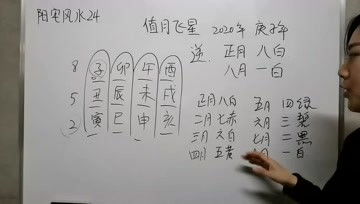 阳宅风水24
值月飞星 2020年 庚子年
逆. 正月 八白
八月 一白
8 子 卯 午 酉
5 丑 辰 未 戌
2 寅 巳 申 亥
正月 八白 五月 四绿
二月 七赤 六月 三碧
三月 六白 七月 二黑
四月 五黄 一白